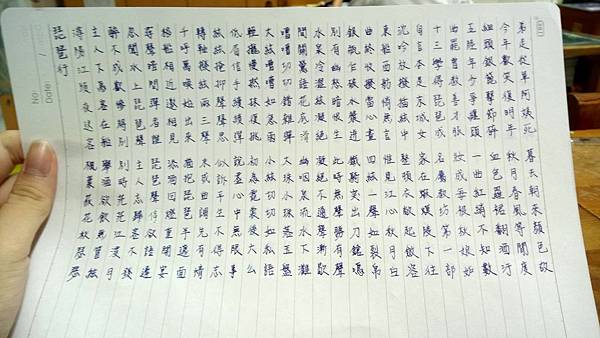 No:
Date:
琵琶行
潯陽江頭夜送客 楓葉荻花秋瑟瑟
主人下馬客在船 舉酒欲飲無管絃
醉不成歡慘將別 別時茫茫江浸月
忽聞水上琵琶聲 主人忘歸客不發
尋聲暗問彈者誰 琵琶聲停欲語遲
移船相近邀相見 添酒回燈重開宴
千呼萬喚始出來 猶抱琵琶半遮面
轉軸撥絃兩三聲 未成曲調先有情
絃絃掩抑聲聲思 似訴平生不得志
低眉信手續續彈 說盡心中無限事
輕攏慢撚抹復挑 初為霓裳後六么
大絃嘈嘈如急雨 小絃切切如私語
嘈嘈切切錯雜彈 大珠小珠落玉盤
間關鶯語花底滑 幽咽泉流水下灘
水泉冷澀絃凝絕 凝絕不通聲漸歇
別有幽愁暗恨生 此時無聲勝有聲
銀瓶乍破水漿迸 鐵騎突出刀鎗鳴
曲終收撥當心畫 四絃一聲如裂帛
東船西舫悄無言 惟見江心秋月白
沉吟放撥插絃中 整頓衣裳起斂容
自言本是京城女 家在蝦蟆陵下住
十三學得琵琶成 名屬教坊第一部
曲罷曾教善才服 妝成每被秋娘妒
五陵年少爭纏頭 一曲紅綃不知數
鈿頭銀篦擊節碎 血色羅裙翻酒污
今年歡笑復明年 秋月春風等閒度
弟走從軍阿姨死 暮去朝來顏色故